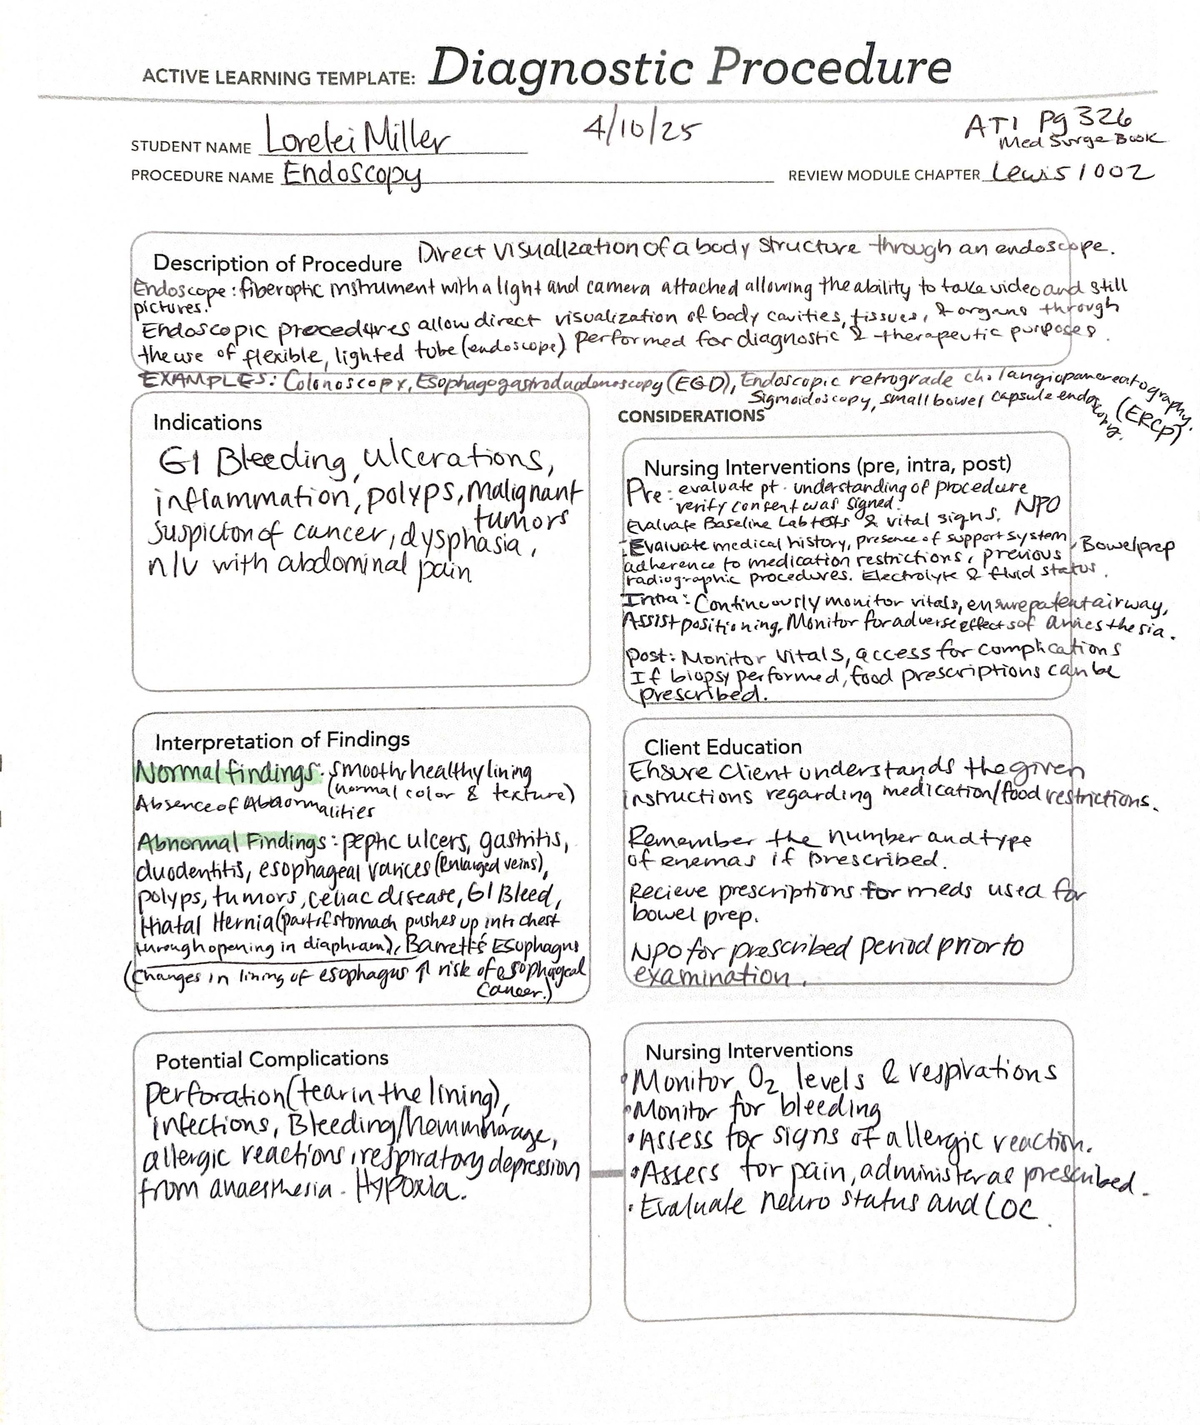 ACTIVE LEARNING TEMPLATE: Diagnostic Procedure
STUDENT NAME Lorelei Miller 4/10/25 ATI Pg 326
Med Surge Book
PROCEDURE NAME Endoscopy REVIEW MODULE CHAPTER Lewis 1002
Description of Procedure Direct visualization of a body structure through an endoscope.
Endoscope: fiberoptic instrument with a light and camera attached allowing the ability to take video and still
pictures.
Endoscopic procedures allow direct visualization of body cavities, tissues, & organs through
the use of flexible, lighted tube (endoscope) performed for diagnostic & therapeutic purposes.
EXAMPLES: Colonoscopy, Esophagogastroduodonoscopy (EGD), Endoscopic retrograde cholangiopancreatography.
(ERCP)
Sigmoidoscopy, small bowel capsule endoscopy.
Indications
GI Bleeding, ulcerations,
inflammation, polyps, malignant
tumors
suspicion of cancer, dysphasia,
n/v with abdominal pain
CONSIDERATIONS
Nursing Interventions (pre, intra, post)
Pre: evaluate pt. understanding of procedure
verify consent was signed. NPO
Evaluate Baseline Lab tests & vital signs.
-Evaluate medical history, presence of support system, Bowel prep
adherence to medication restrictions, previous
radiographic procedures. Electrolyte & fluid status.
Intra: Continuously monitor vitals, ensure patent airway,
Assist positioning, Monitor for adverse effects of anaesthesia.
Post: Monitor Vitals, access for complications
If biopsy performed, food prescriptions can be
prescribed.
Interpretation of Findings
Normal findings: smooth healthy lining
(normal color & texture)
Absence of Abnormalities
Abnormal Findings: peptic ulcers, gastritis,
duodentitis, esophageal varices (Enlarged veins),
polyps, tumors, celiac disease, GI Bleed,
Hiatal Hernia (part of stomach pushes up into chest
through opening in diaphram), Barrett's Esophagus
(Changes in lining of esophagus ↑ risk of esophageal
cancer.)
Client Education
Ensure Client understands the given
instructions regarding medication/food restrictions.
Remember the number and type
of enemas if prescribed.
Recieve prescriptions for meds used for
bowel prep.
NPO for prescribed period prior to
examination.
Potential Complications
Perforation (tear in the lining),
infections, Bleeding/hemmhorage,
allergic reactions, respiratory depression
from anaesthesia. Hypoxia.
Nursing Interventions
• Monitor O2 levels & respirations
• Monitor for bleeding
• Assess for signs of allergic reaction.
• Assess for pain, administer as prescribed.
• Evaluate neuro status and LOC.